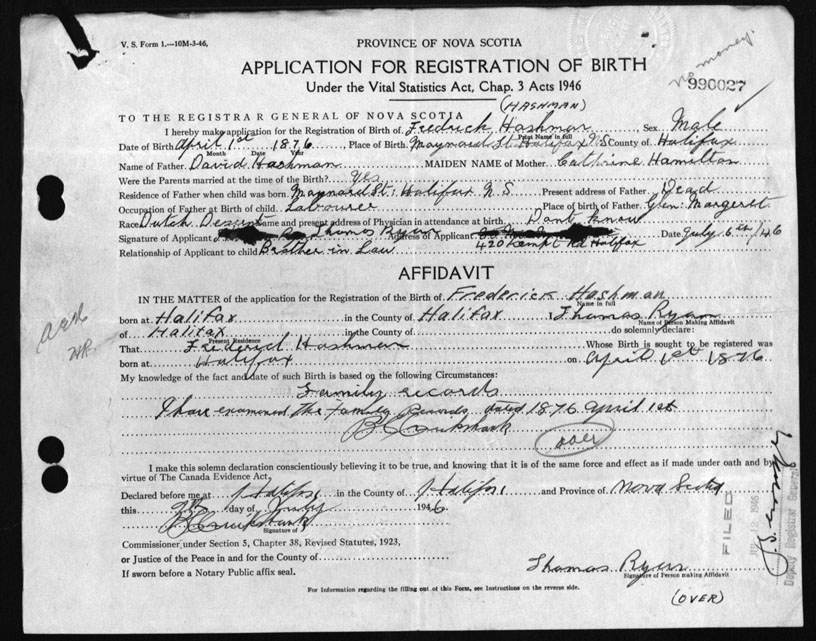 V. S. Form 1.—10M-3-46.
PROVINCE OF NOVA SCOTIA
no money.
APPLICATION FOR REGISTRATION OF BIRTH
990027
Under the Vital Statistics Act, Chap. 3 Acts 1946
(HASHMAN)
TO THE REGISTRAR GENERAL OF NOVA SCOTIA
I hereby make application for the Registration of Birth of Fredrick Hashman Sex Male
Print Name in full
Date of Birth April 1st 1876 Place of Birth Maynard St Halifax N S County of Halifax
Month Date Year
Name of Father David Hashman MAIDEN NAME of Mother Cathrine Hamilton
Were the Parents married at the time of the Birth? Yes
Residence of Father when child was born Maynard St: Halifax N S Present address of Father Dead
Occupation of Father at Birth of child Labourer Place of birth of Father Glen: Margeret
Race Dutch Descent Name and present address of Physician in attendance at birth Dont know
Signature of Applicant Thomas Ryan Address of Applicant 420 Kempt Rd Halifax Date July 6th /46
Relationship of Applicant to child Brother in Law
AFFIDAVIT
IN THE MATTER of the application for the Registration of the Birth of Frederick Hashman
Name in full
born at Halifax in the County of Halifax I Thomas Ryan
Name of Person Making Affidavit
of Halifax in the County of do solemnly declare:
Present Residence
That Frederick Hashman Whose Birth is sought to be registered was
born at Halifax on April 1st 1876
My knowledge of the fact and date of such Birth is based on the following Circumstances:
Family records
I have examined the Family Records dated 1876 April 1st
B Cruikshank
over
I make this solemn declaration conscientiously believing it to be true, and knowing that it is of the same force and effect as if made under oath and by
virtue of The Canada Evidence Act.
Declared before me at Halifax in the County of Halifax and Province of Nova Scotia
this day of 1946
B Cruikshank
Signature of
Commissioner under Section 5, Chapter 38, Revised Statutes, 1923,
or Justice of the Peace in and for the County of
If sworn before a Notary Public affix seal.
Thomas Ryan
Signature of Person making Affidavit
For Information regarding the filling out of this Form, see Instructions on the reverse side.
(OVER)
FILED
Deputy Registrar General